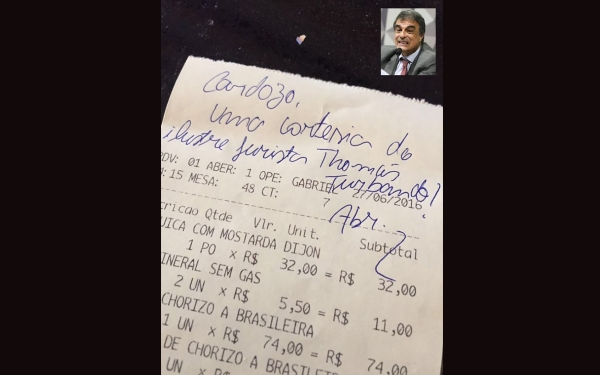 Cardozo,
uma cortesia do
ilustre jurista Thomás
Turbando!
DV: 01 ABER: 1 OPE: GABRIE 27/06/2016
:15 MESA: 48 CT: 7
Abr.
cricao Qtde Vlr. Unit. Subtotal
UICA COM MOSTARDA DIJON
1 PO x R$ 32,00 = R$ 32,00
INERAL SEM GAS
2 UN x R$ 5,50 = R$ 11,00
CHORIZO A BRASILEIRA
1 UN x R$ 74,00 = R$ 74,00
DE CHORIZO A BRASILEI
UN x R$